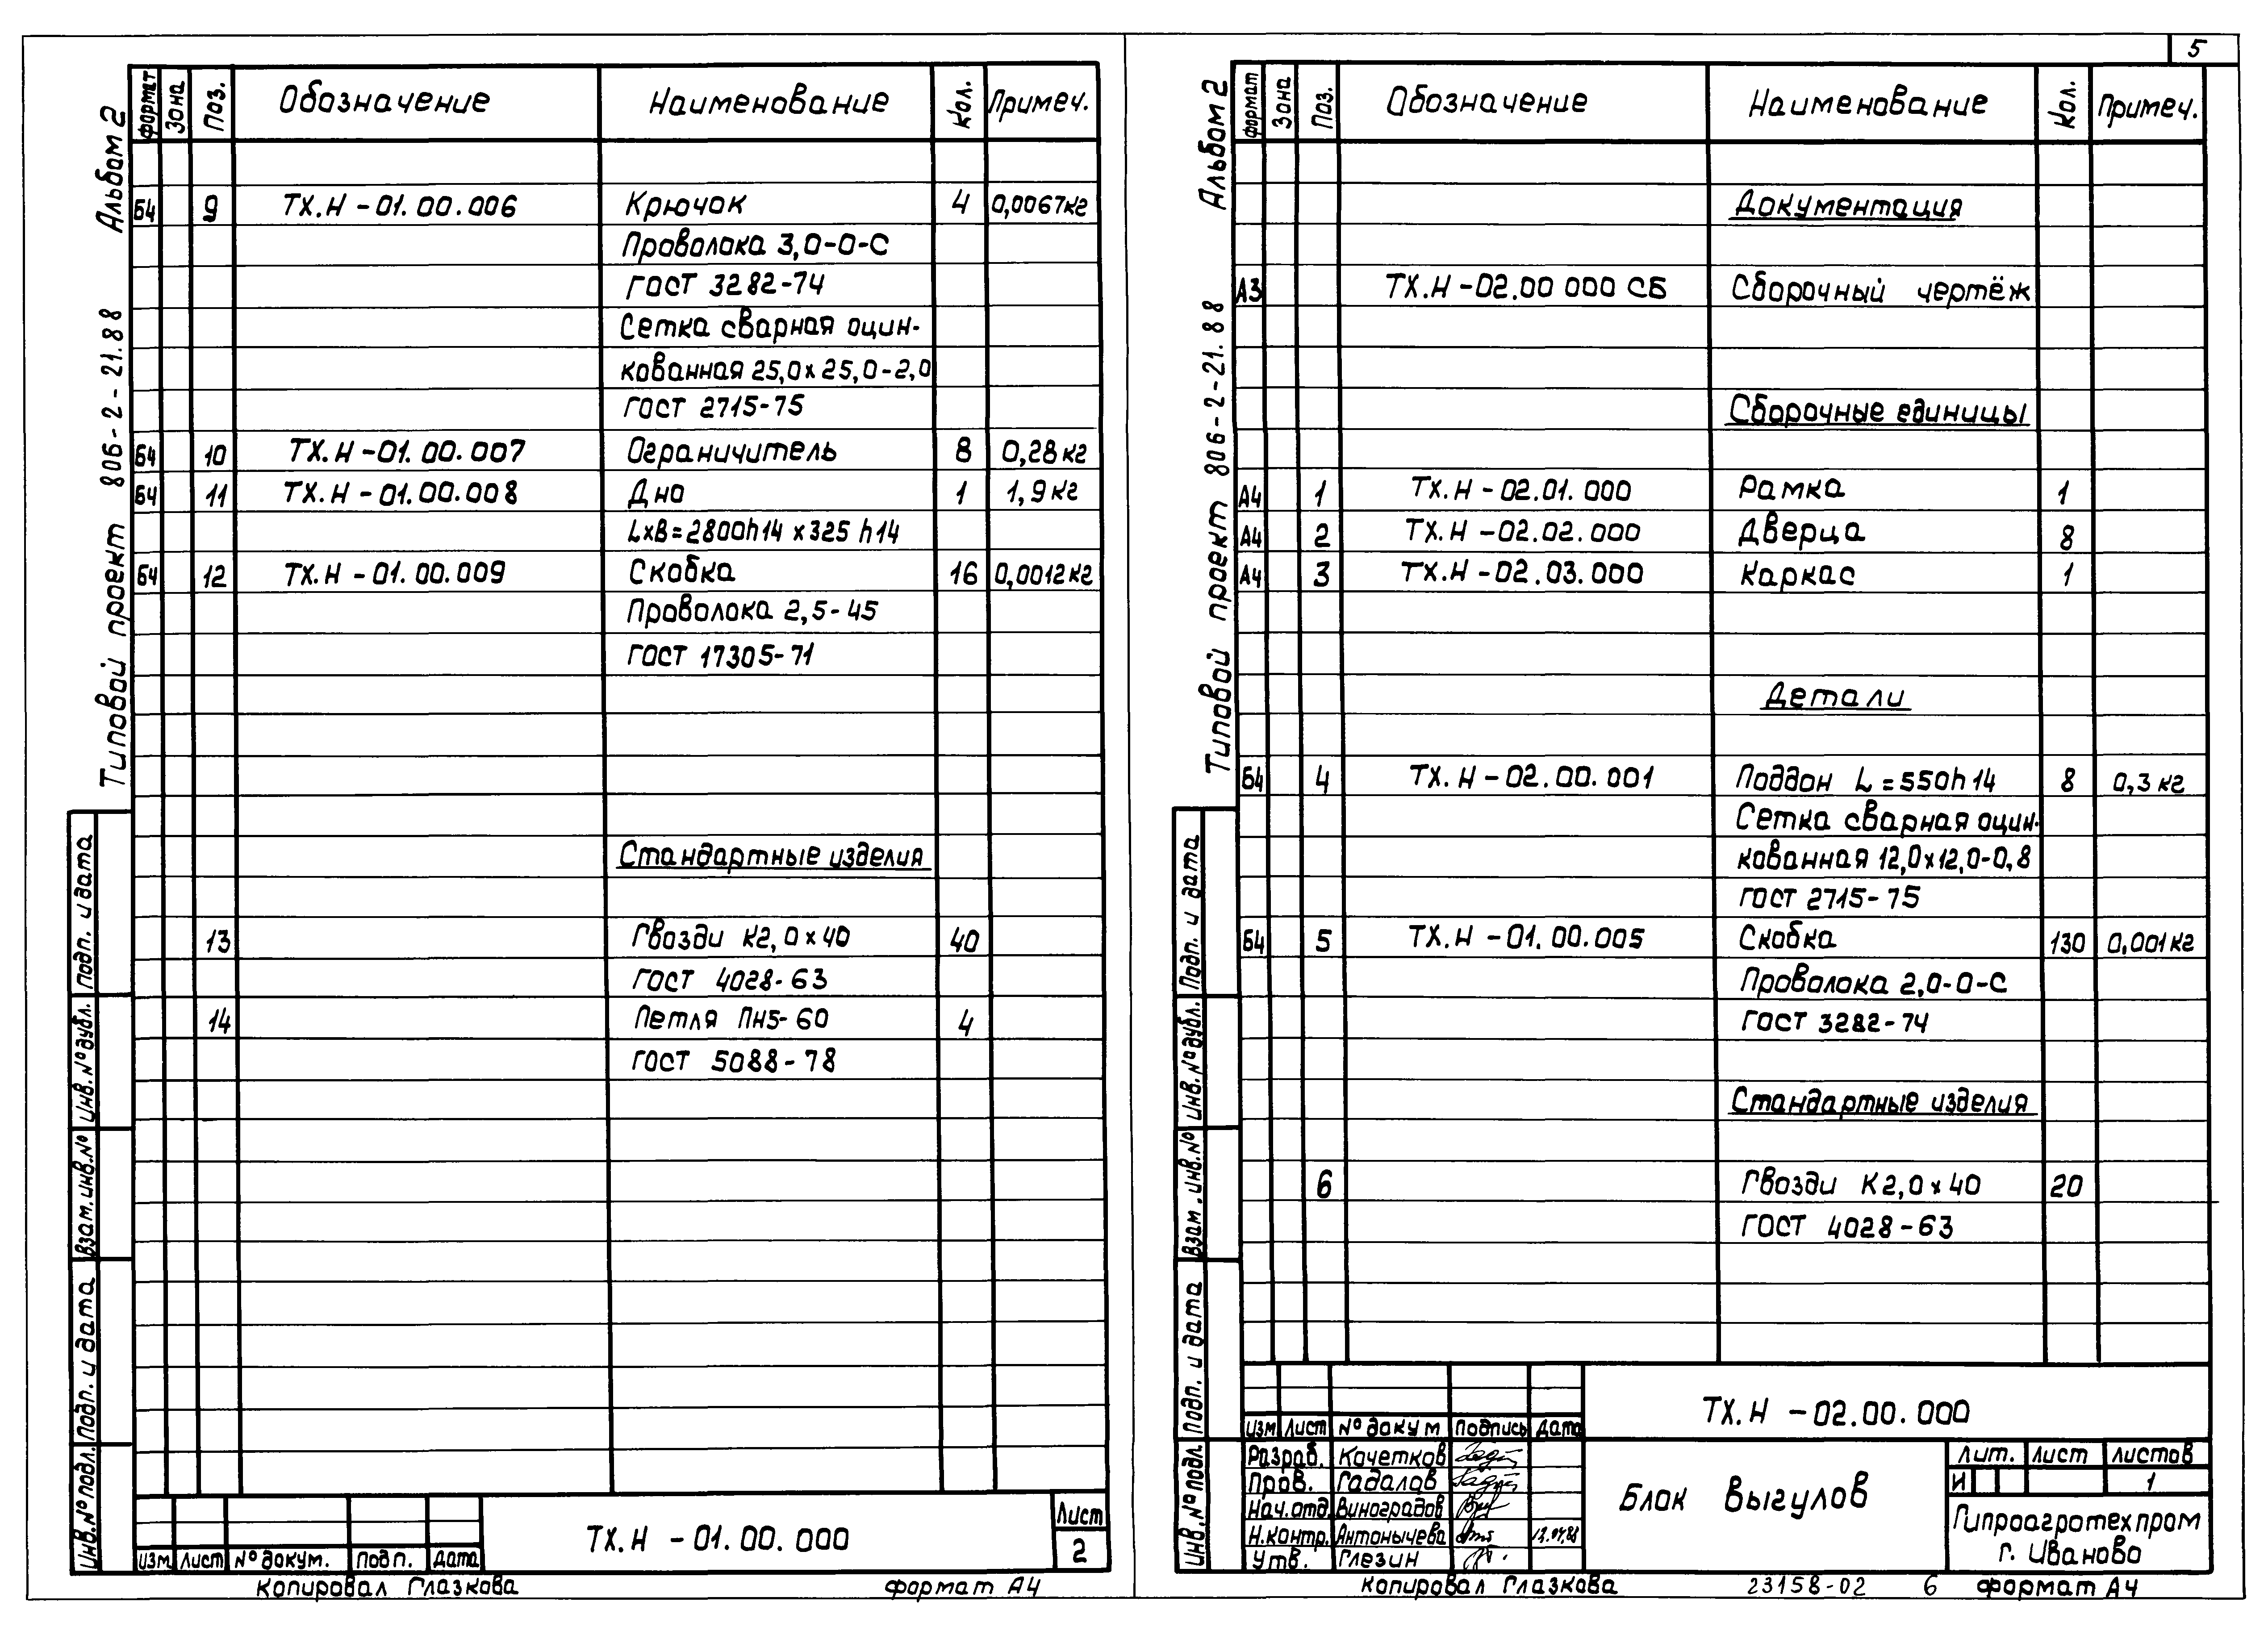 5
Альбом 2
Типовой проект 806-2-21.88
Формат Зона Поз. Обозначение Наименование Кол. Примеч.
Б4 9 ТХ.Н-01.00.006 Крючок 4 0,0067кг
Проволока 3,0-0-С
ГОСТ 3282-74
Сетка сварная оцин-
кованная 25,0х25,0-2,0
ГОСТ 2715-75
Б4 10 ТХ.Н-01.00.007 Ограничитель 8 0,28кг
Б4 11 ТХ.Н-01.00.008 Дно 1 1,9кг
LxB=2800h14x325h14
Б4 12 ТХ.Н-01.00.009 Скобка 16 0,0012кг
Проволока 2,5-45
ГОСТ 17305-71
Стандартные изделия
13 Гвозди К2,0х40 40
ГОСТ 4028-63
14 Петля ПН5-60 4
ГОСТ 5088-78
Подп. и дата
Инв.№дубл.
Взам.инв.№
Подп. и дата
Инв.№подл.
Изм Лист №докум. Подп. Дата
ТХ.Н-01.00.000
Лист
2
Копировал Глазкова формат А4
Альбом 2
Типовой проект 806-2-21.88
Формат Зона Поз. Обозначение Наименование Кол. Примеч.
Документация
А3 ТХ.Н-02.00 000 СБ Сборочный чертёж
Сборочные единицы
А4 1 ТХ.Н-02.01.000 Рамка 1
А4 2 ТХ.Н-02.02.000 Дверца 8
А4 3 ТХ.Н-02.03.000 Каркас 1
Детали
Б4 4 ТХ.Н-02.00.001 Поддон L=550h14 8 0,3кг
Сетка сварная оцин-
кованная 12,0х12,0-0,8
ГОСТ 2715-75
Б4 5 ТХ.Н-01.00.005 Скобка 130 0,001кг
Проволока 2,0-0-С
ГОСТ 3282-74
Стандартные изделия
6 Гвозди К2,0х40 20
ГОСТ 4028-63
Подп. и дата
Инв.№дубл.
Взам.инв.№
Подп. и дата
Инв.№подл.
ТХ.Н-02.00.000
Изм Лист №докум Подпись Дата
Разраб. Кочетков
Пров. Гадалов
Нач.отд. Виноградов
Н.контр. Антонычева
Утв. Глезин
Блок выгулов
Лит. Лист Листов
И 1
Гипроагротехпром
г. Иваново
Копировал Глазкова 23158-02 6 формат А4